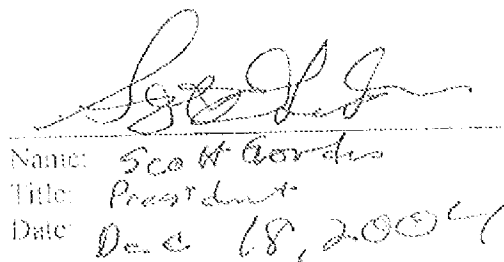 Name: Scott Gordon
Title: President
Date: Dec 18, 2004